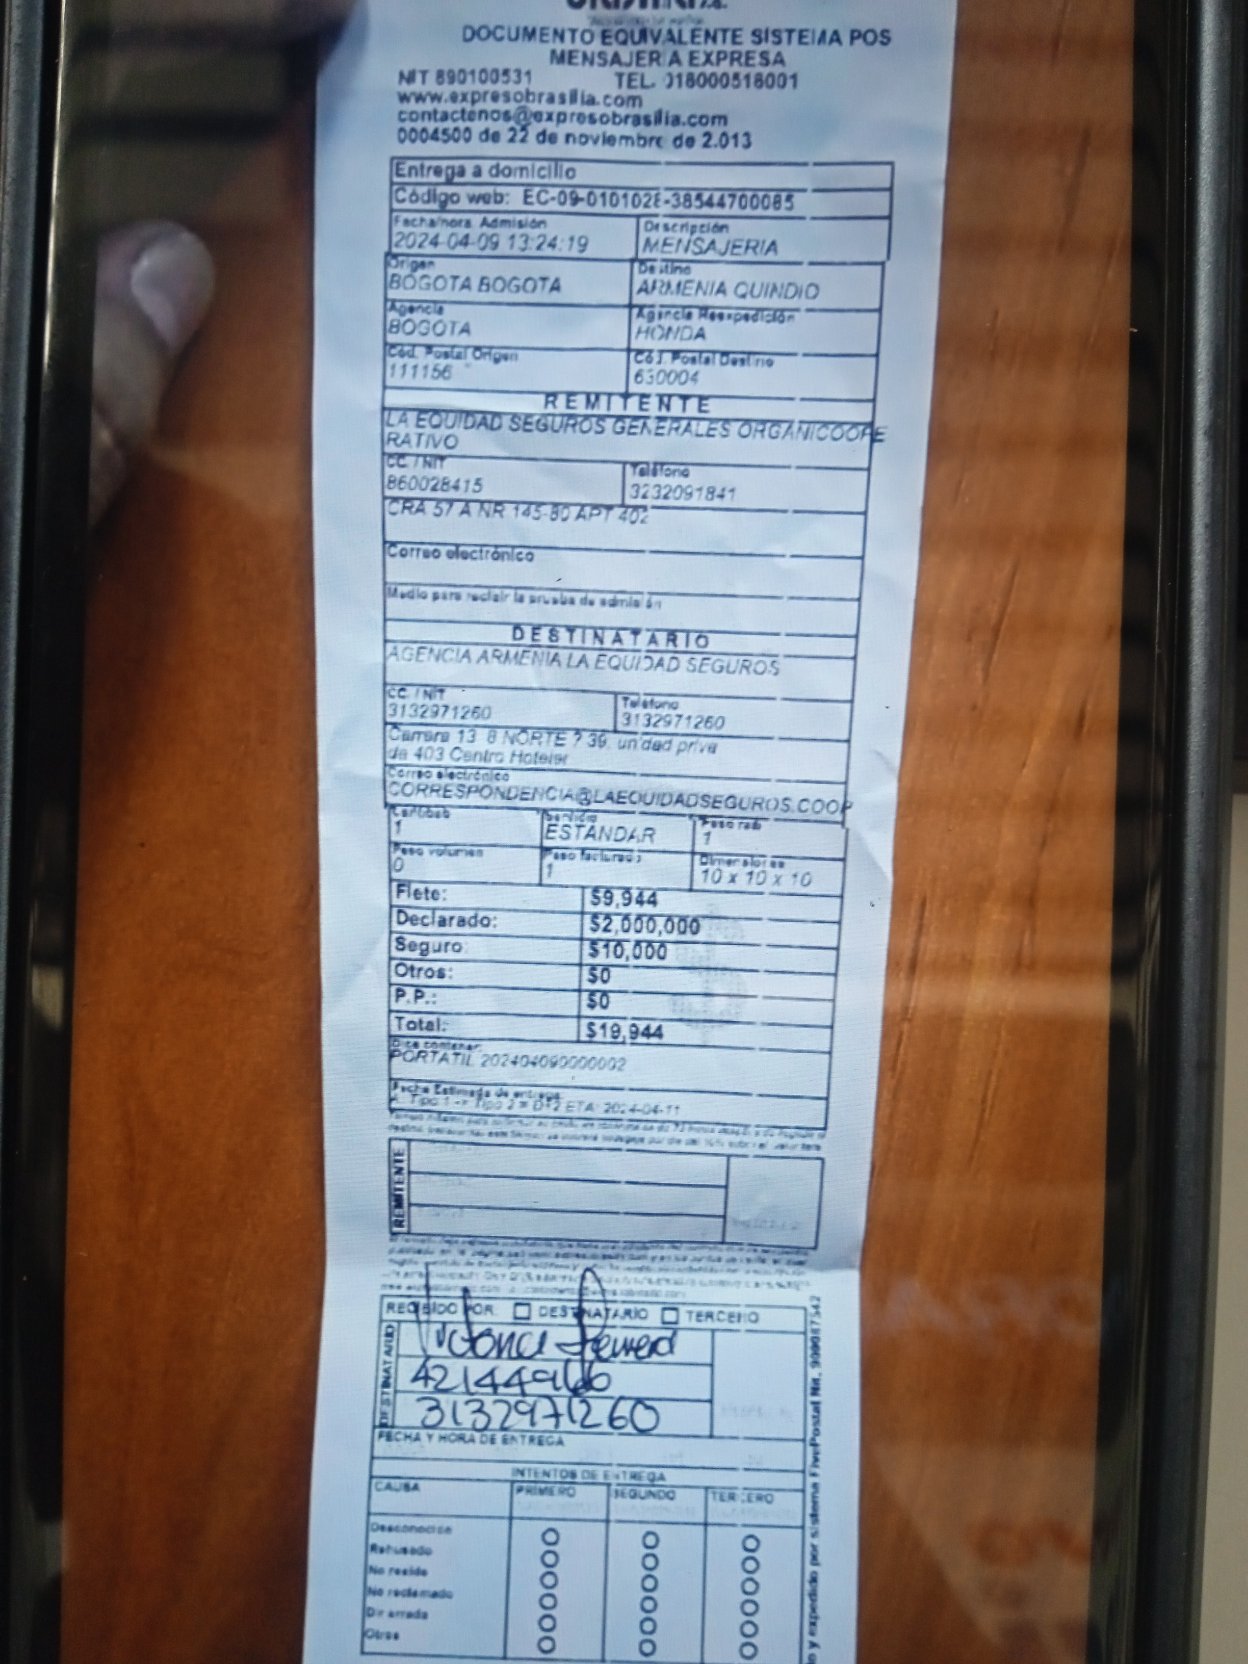 DOCUMENTO EQUIVALENTE SISTEMA POS
MENSAJERIA EXPRESA
NIT 890100531 TEL. 018000518001
www.expresobrasilia.com
contactenos@expresobrasilia.com
0004500 de 22 de noviembre de 2.013
Entrega a domicilio
Código web: EC-09-0101028-38544700085
Fecha/hora Admisión Descripción
2024-04-09 13:24:19 MENSAJERIA
Origen Destino
BOGOTA BOGOTA ARMENIA QUINDIO
Agencia Agencia Reexpedición
BOGOTA HONDA
Cód. Postal Origen Cód. Postal Destino
111156 630004
REMITENTE
LA EQUIDAD SEGUROS GENERALES ORGANICOOPE
RATIVO
CC. / NIT Teléfono
860028415 3232091841
CRA 57 A NR 145-80 APT 402
Correo electrónico
Medio para recibir la prueba de admisión
DESTINATARIO
AGENCIA ARMENIA LA EQUIDAD SEGUROS
CC. / NIT Teléfono
3132971260 3132971260
Carrera 13 8 NORTE ? 39. unidad priva
da 403 Centro Hoteler
Correo electrónico
CORRESPONDENCIA@LAEQUIDADSEGUROS.COOP
Cantidad Servicio Peso real
1 ESTANDAR 1
Peso volumen Peso facturado Dimensiones
0 1 10 x 10 x 10
Flete: $9,944
Declarado: $2,000,000
Seguro: $10,000
Otros: $0
P.P.: $0
Total: $19,944
Dice contener:
PORTATIL 202404090000002
Fecha Estimada de entrega:
Tipo 1 -> Tipo 2 = D+2 ETA: 2024-04-11
REMITENTE
RECIBIDO POR: DESTINATARIO TERCERO
DESTINATARIO
42144966
3132971260
FECHA Y HORA DE ENTREGA
INTENTOS DE ENTREGA
CAUSA PRIMERO SEGUNDO TERCERO
Desconocido
Rehusado
No reside
No reclamado
Dir errada
Otros
o y expedido por sistema FivePostal Nit. 900087542